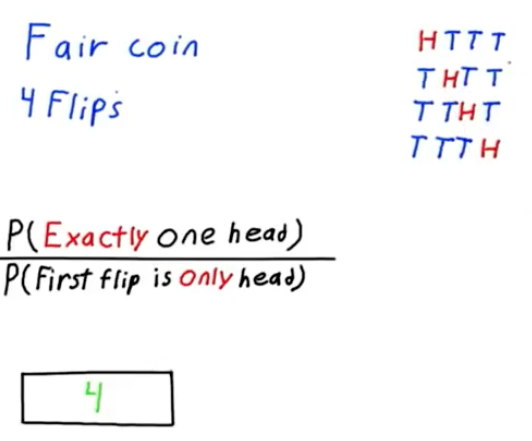 Fair coin
4 Flips
HTTT
THTT
TTHT
TTTH
P(Exactly one head)
P(First flip is only head)
4